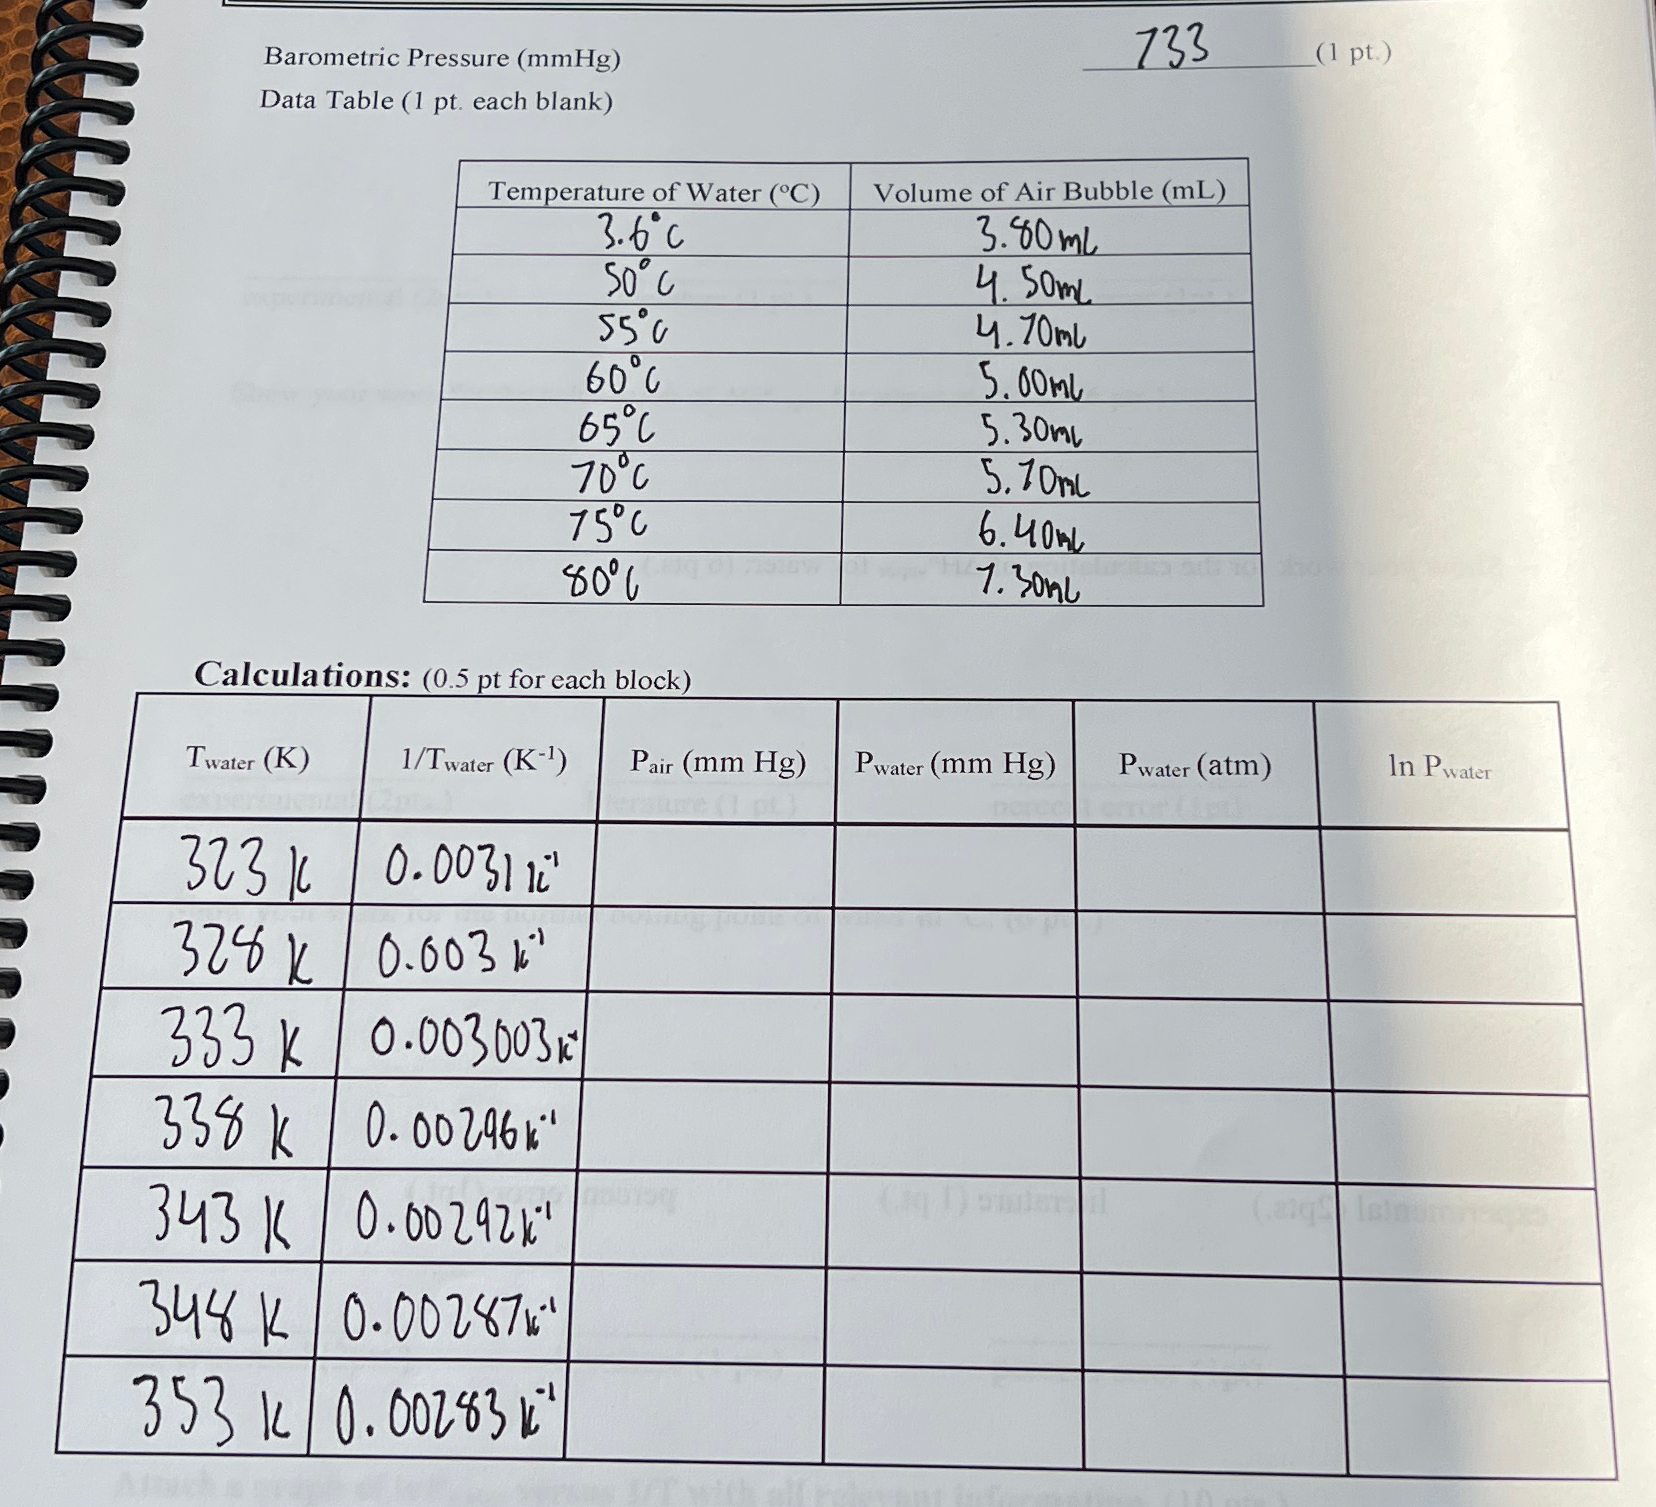 Barometric Pressure (mmHg) 733 (1 pt.)
Data Table (1 pt. each blank)
Temperature of Water (°C) Volume of Air Bubble (mL)
3.6°C 3.80mL
50°C 4.50mL
55°C 4.70mL
60°C 5.00mL
65°C 5.30mL
70°C 5.70mL
75°C 6.40mL
80°C 7.30mL
Calculations: (0.5 pt for each block)
Twater (K) 1/Twater (K-1) Pair (mm Hg) Pwater (mm Hg) Pwater (atm) ln Pwater
323 K 0.0031 K-1
328 K 0.003 K-1
333 K 0.003003 K-1
338 K 0.00296 K-1
343 K 0.00292 K-1
348 K 0.00287 K-1
353 K 0.00283 K-1